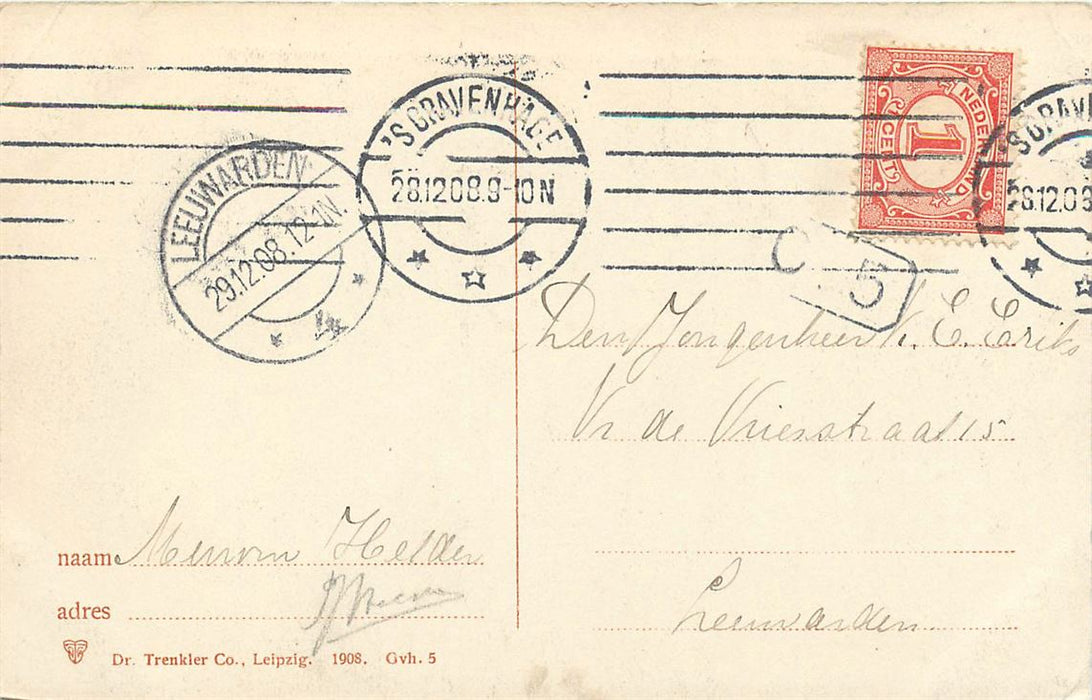 'S GRAVENHAGE
28.12.08.9-10N
LEEUWARDEN
29.12.08.12-1N.
NEDERLAND
1
CENT
'S GRAVEN
28.12.08
C 5
Den Jongenheer K. E. Eriks
Vr de Vriesstraat 15
Leeuwarden
naam Helder
adres
Dr. Trenkler Co., Leipzig. 1908. Gvh. 5